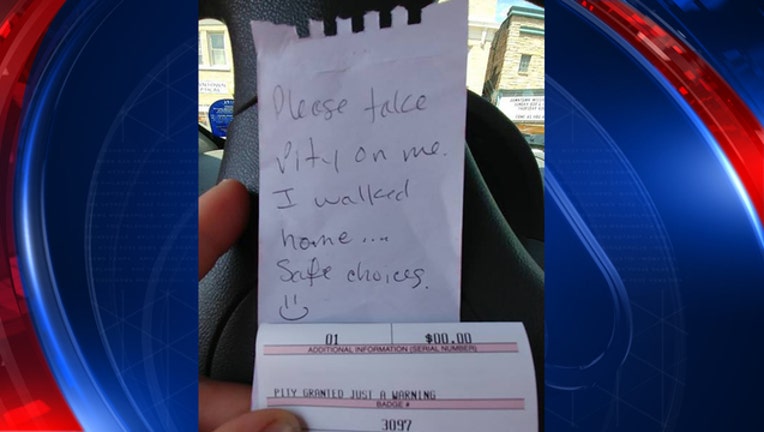 Please take
Pity on me.
I walked
home....
Safe choices.
01 $00.00
ADDITIONAL INFORMATION (SERIAL NUMBER)
PITY GRANTED JUST A WARNING
BADGE #
3097